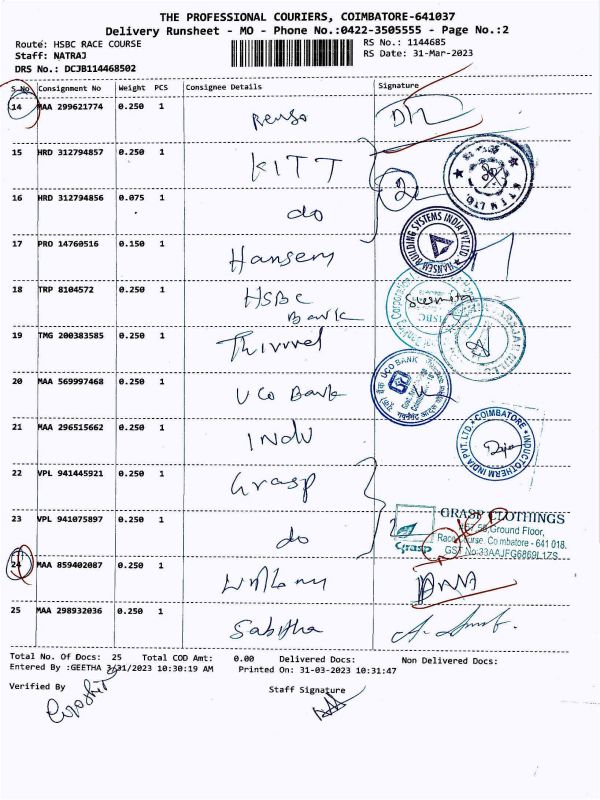 THE PROFESSIONAL COURIERS, COIMBATORE-641037
Delivery Runsheet - MO - Phone No.:0422-3505555 - Page No.:2
Route: HSBC RACE COURSE
RS No.: 1144685
Staff: NATRAJ
RS Date: 31-Mar-2023
DRS No.: DCJB114468502
S No. Consignment No Weight PCS Consignee Details Signature
14 MAA 299621774 0.250 1
15 HRD 312794857 0.250 1 KITT
16 HRD 312794856 0.075 1 do 2
17 PRO 14760516 0.150 1 Hansem
HANSEM BUILDING SYSTEMS INDIA PVT LTD
18 TRP 8104572 0.250 1 HSBC Bank
HSBC
19 TMG 200383585 0.250 1 Thirvvel
20 MAA 569997468 0.250 1 UCO Bank
UCO BANK
21 MAA 296515662 0.250 1 INDU
COIMBATORE INDUCTOTHERM INDIA PVT. LTD.
22 VPL 941445921 0.250 1 Grasp
23 VPL 941075897 0.250 1 do
GRASP CLOTHINGS
Ground Floor,
Race Course. Coimbatore - 641 018.
GST No:33AAJFG6869L1ZS
Grasp
24 MAA 859402087 0.250 1
25 MAA 298932036 0.250 1 Sabitha
Total No. Of Docs: 25 Total COD Amt: 0.00 Delivered Docs: Non Delivered Docs:
Entered By :GEETHA 3/31/2023 10:30:19 AM Printed On: 31-03-2023 10:31:47
Verified By
Staff Signature